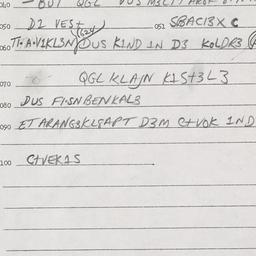 040 – BUT QGL DUS
050 D2 VEST 052 SBACI3X C
060 TI·A·V1KL3N DUS K1ND 1N D3 KOLDR3
070 QGL KLAJN K1ST3L3
080 DUS FI·SNBENKAL3
090 ETARANG3KLSAPT D3M C+VOK 1ND
100 C+VEK1S